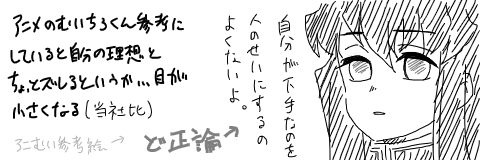 アニメのむいちろくん参考に
していると自分の理想と
ちょっとズレるというか…目が
小さくなる(当社比)
アニむい参考絵→
ど正論↗
自分が下手なのを
人のせいにするの
よくないよ。